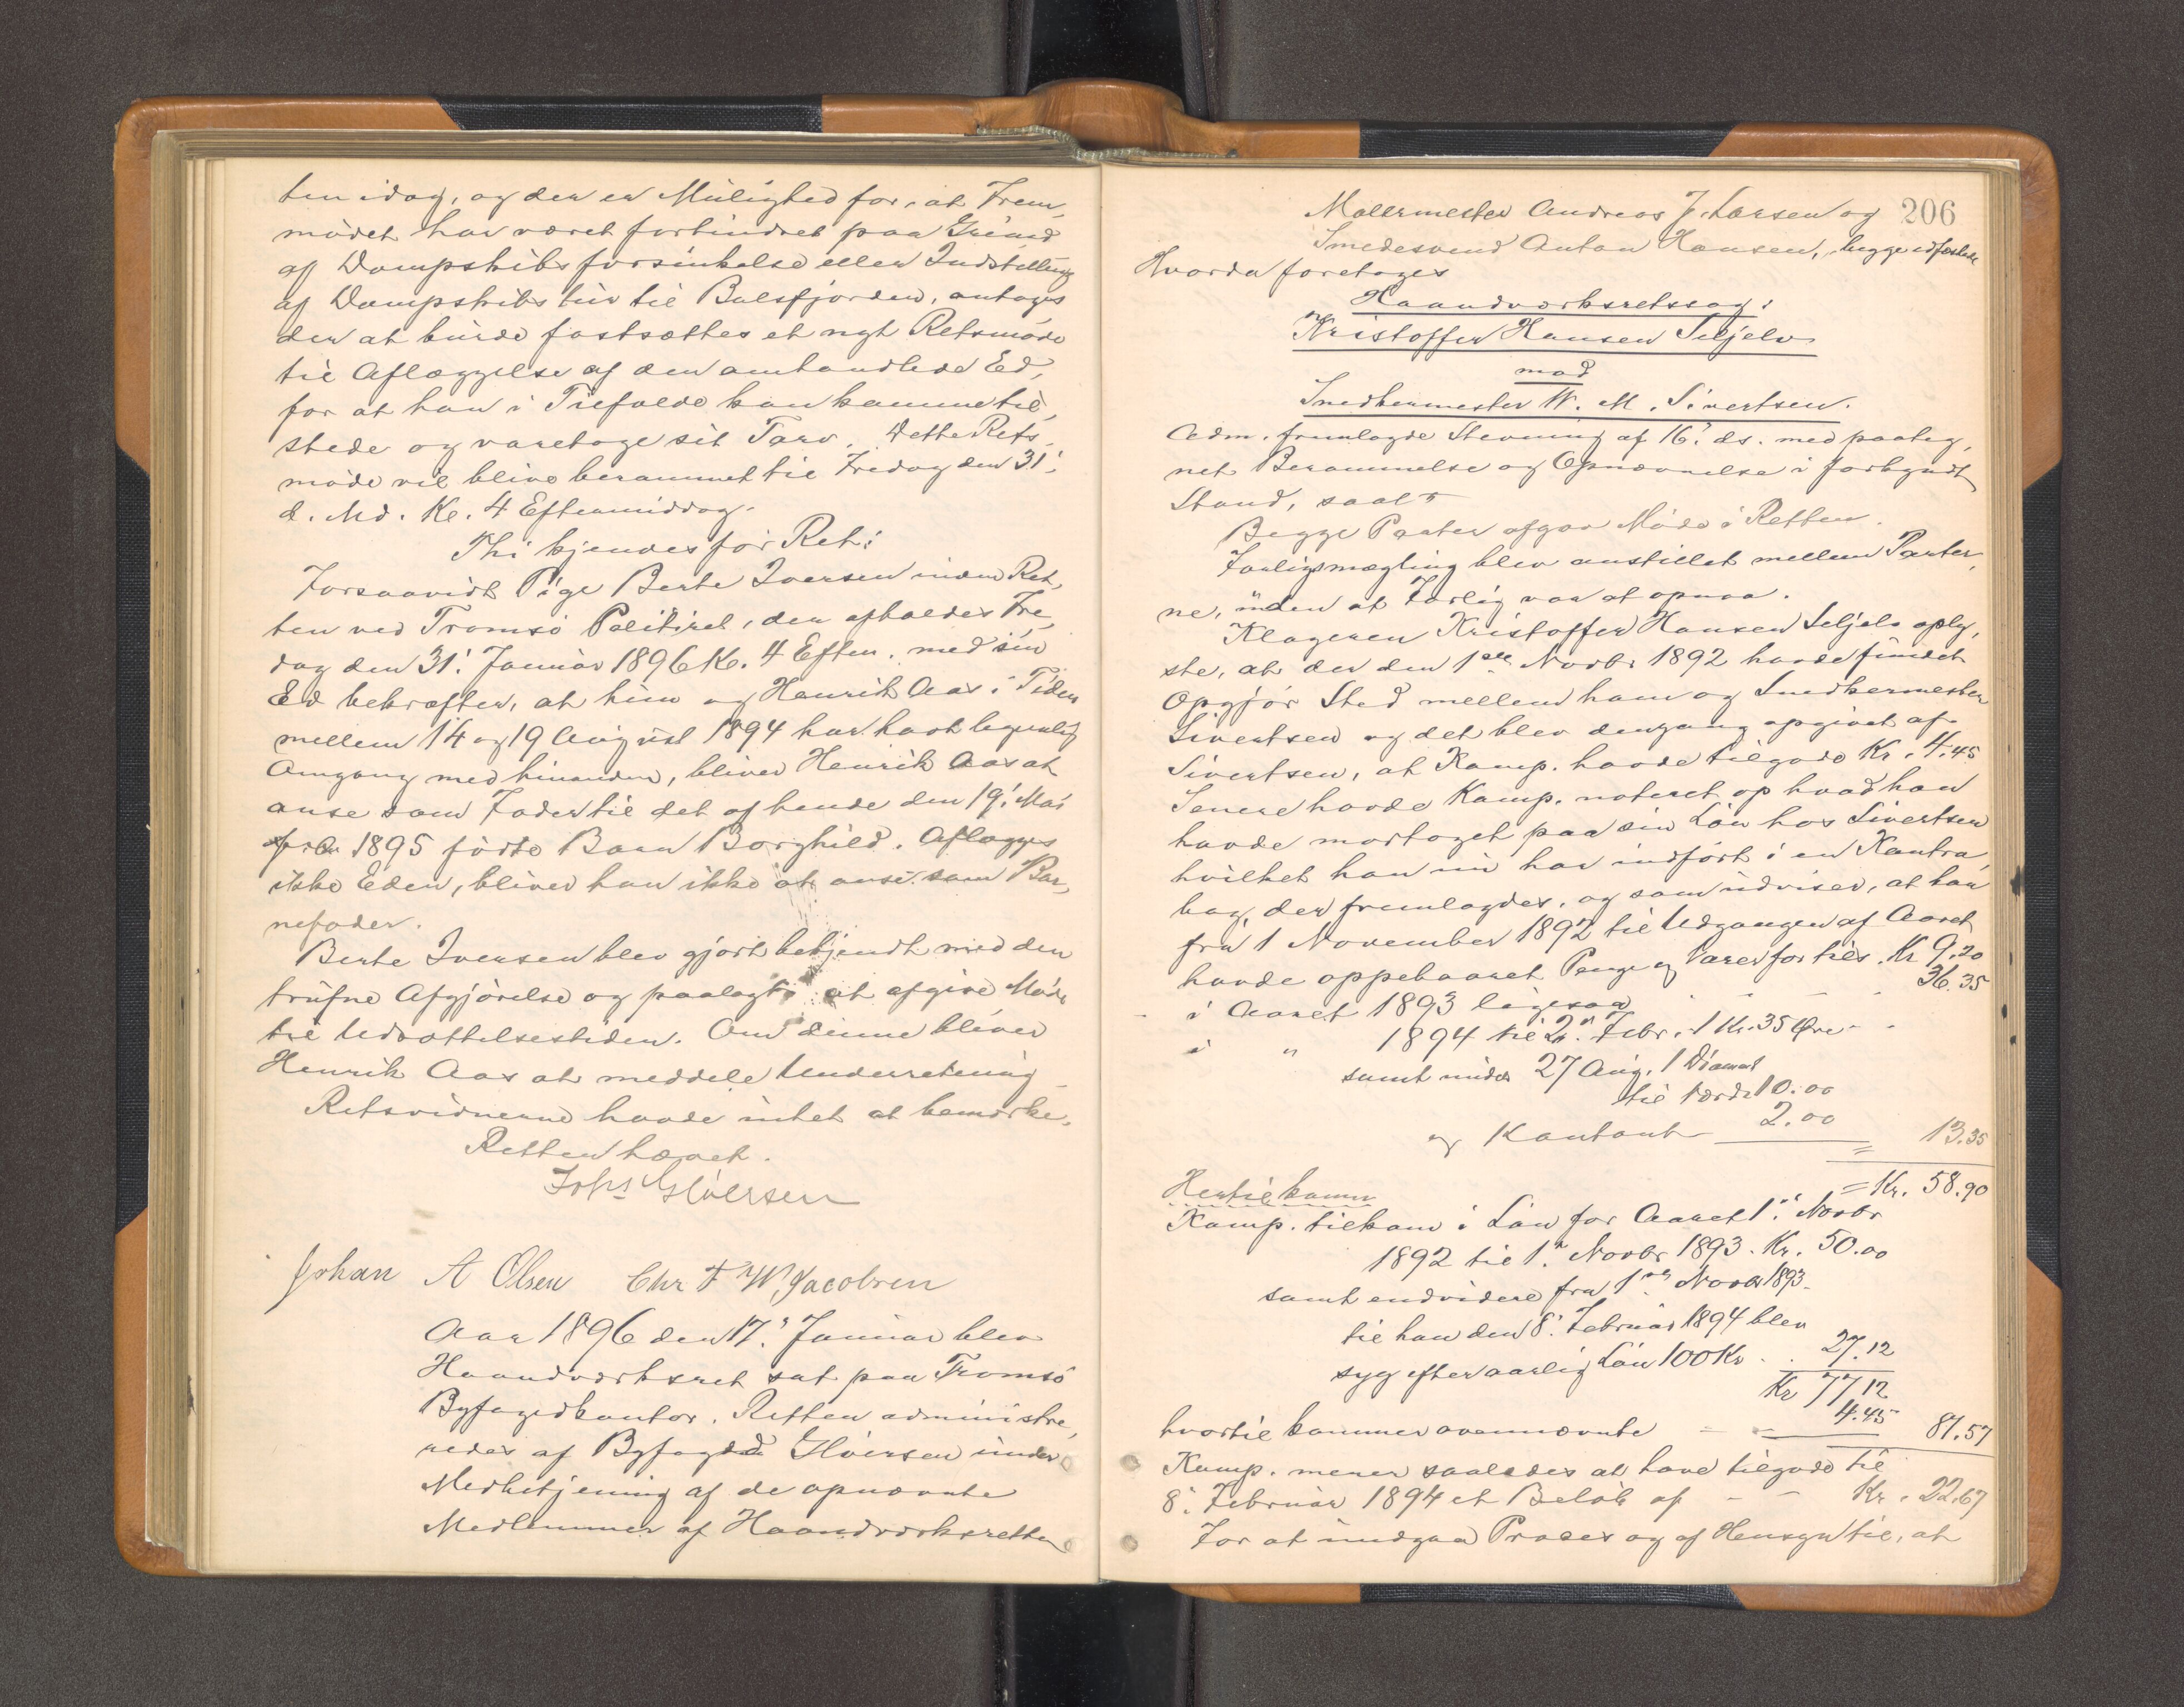 ten idag, og der er Mulighed for, at Frem-
mødet har været forhindret paa Grund
af Dampskibsforsinkelse eller Indstilling
af Dampskibstur til Balsfjorden, antages
der at burde fastsættes et nyt Retsmøde
til Aflæggelse af den omhandlede Ed,
for at han i Tilfælde kan komme til-
stede og varetage sit Tarv. Dette Rets-
møde vil blive berammet til Fredag den 31'
d. Md. Kl. 4 Eftermiddag.
Thi kjendes for Ret:
Forsaavidt Pige Berte Iversen inden Ret-
ten ved Tromsø Politiret, der afholdes Fre-
dag den 31' Januar 1896 Kl. 4 Efterm. med sin
Ed bekræfter, at hun og Henrik Aas i Tiden
mellem 14 og 19 August 1894 har havt legemlig
Omgang med hinanden, bliver Henrik Aas at
anse som Fader til det af hende den 19' Mai
1895 fødte Barn Borghild. Aflægges
ikke Eden, bliver han ikke at anse som Bar-
nefader.
Berte Iversen blev gjort bekjendt med den
trufne Afgjørelse og paalagt at afgive Møde
til Udsættelsestiden. Om denne bliver
Henrik Aas at meddele Underretning
Retsvidnerne havde intet at bemærke.
Retten hævet.
Johs Gløersen
Johan A Olsen Chr F W Jacobsen
Aar 1896 den 17' Januar blev
Haandværksret sat paa Tromsø
Byfogedkontor. Retten administre-
redes af Byfoged Gløersen under
Medbetjening af de opnævnte
Medlemmer af Haandværksretten
206
Malermester Andreas J. Larsen og
Smedesvend Anton Hansen, begge edfæstede
Hvorda foretoges
Haandværksretssag:
Kristoffer Hansen Seljelv
mod
Snedkermester W. M. Sivertsen.
Adm. fremlagde Stevning af 16' ds. med paateg-
net Berammelse og Opnævnelse i forkyndt
Stand, saal
Begge Parter afgav Møde i Retten.
Forligsmægling blev anstillet mellem Parter-
ne, uden at Forlig var at opnaa.
Klageren Kristoffer Hansen Seljelv oply-
ste, at der den 1ste Novbr 1892 havde fundet
Opgjør Sted mellem ham og Snedkermester
Sivertsen og det blev dengang opgivet af
Sivertsen, at Komp. havde tilgode Kr. 4.45
Senere havde Komp. noteret op hvad han
havde modtaget paa sin Løn hos Sivertsen
hvilket han nu har indført i en Kontra-
bog, der fremlagdes, og som udviser, at han
fra 1 November 1892 til Udgangen af Aaret
havde oppebaaret Penge og Varer for tils. Kr 9.20
i Aaret 1893 ligesaa - - - 36.35
i " 1894 til 2' Febr. 1 Kr. 35 Øre - -
samt under 27 Aug. 1 Diamant
til Værdi 10.00
og Kontant 2.00 = 13.35
= Kr. 58.90
Hertil kommer
Komp. tilkom i Løn for Aaret 1' Novbr
1892 til 1' Novbr 1893. Kr. 50.00
samt endvidere fra 1ste Novbr 1893
til han den 8' Februar 1894 blev
syg efter aarlig Løn 100 Kr . . 27.12
Kr 77.12
hvortil kommer ovennævnte - - 4.45 81.57
Komp. mener saaledes at have tilgode til
8' Februar 1894 et Beløb af - - Kr. 22.67
For at undgaa Proces og af Hensyn til, at